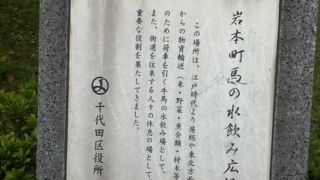 岩本町馬の水飲み広場
この場所は、江戸時代より房総や東北方面
からの物資輸送(米・野菜・魚介類・材木等)
のために荷車を引く牛馬の水飲み場として、
また、街道を往来する人々の休息の場として、
重要な役割を果たしてきました。
千代田区役所